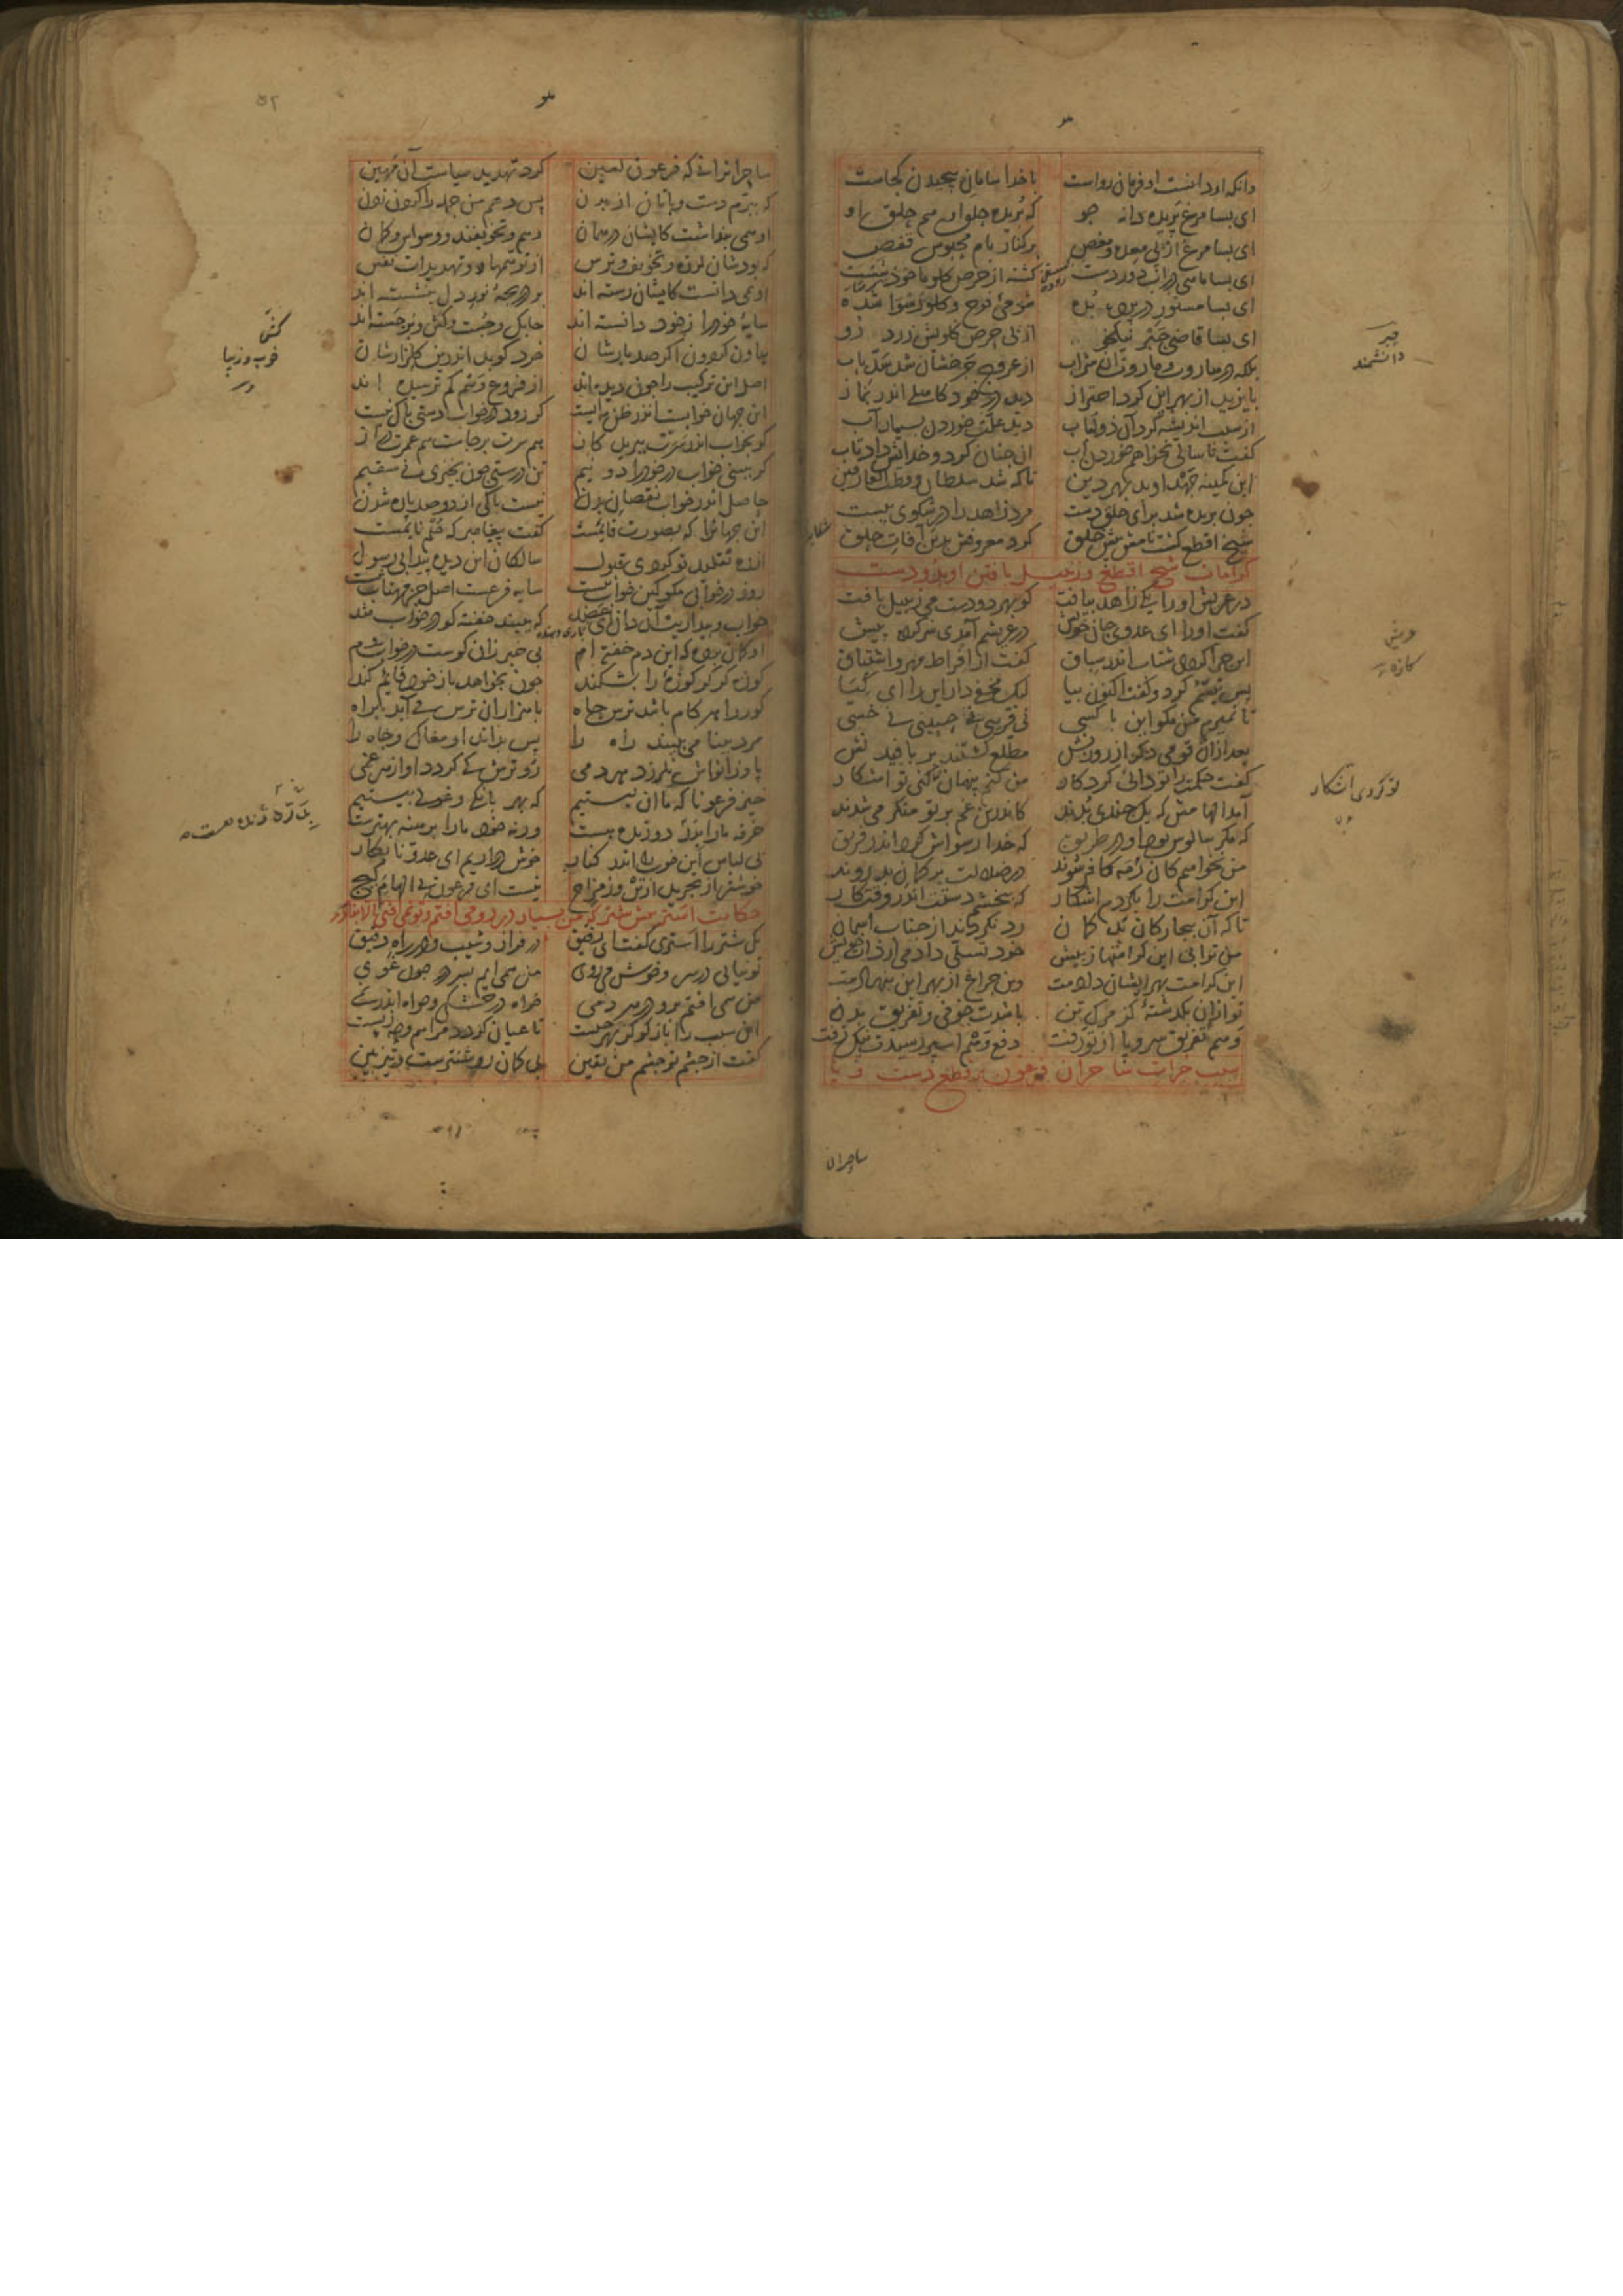 دانکه او دانست او فرمان رواست با خدا سامان پیچیدن کجاست
ای بسا مرغ پریده دانه جو که بریده حلق او هم حلق او
ای بسا مرغ از پی معده و مغص بر کنار بام محبوس قفص
ای بسا ماهی در آب دوردست گشته از حرص گلو ماخوذ شست
ای بسا مستور در پرده بده شومی فرج و گلو رسوا شده
ای بسا قاضی حبر نیکخو از پی حرص گلویش زرد رو
بلکه در هاروت و ماروت آن شراب از عروج چرخشان شد سد باب
بایزید از بهر این کرد احتراز دید در خود کاهلی اندر نماز
از سبب اندیشه کرد آن ذو لباب دید علت خوردن بسیار آب
گفت تا سالی نخواهم خورد آب آن چنان کرد و خدایش داد تاب
این کمینه جهد او بد بهر دین تا که شد سلطان و قطب العارفین
چون بریده شد برای حلق دست مرد زاهد را در شکوی ببست
شیخ اقطع گشت نامش پیش خلق کرد معروفش بدین آفات حلق
کرامات شیخ اقطع و زنبیل بافتن او بدو دست
در عریش او را یکی زاهد بیافت کو بهر دو دست می زنبیل بافت
گفت او را ای عدوی جان خویش در عریشم آمدی سر کرده پیش
این چرا کردی شتاب اندر سباق گفت از افراط مهر و اشتیاق
پس تبسم کرد و گفت اکنون بیا لیک مخفی دار این را ای کیا
تا نمیرم من مگو این با کسی نی قرینی نی حبیبی نی خسی
بعد از آن قومی دگر از روزنش مطلع گشتند بر بافیدنش
گفت حکمت را تو دانی کردگار من کنم پنهان تو کردی آشکار
آمد الهامش که یک چندی بدند کاندرین غم بر تو منکر می شدند
که مگر سالوس بود او در طریق که خدا رسواش کرد اندر فریق
من نخواهم کان رمه کافر شوند در ضلالت در گمان بد روند
این کرامت را بکردیم آشکار که ببخشیم دستت اندر وقت کار
تا که آن بیچارگان بد گمان رد نگردند از جناب آسمان
من ترا بی این کرامتها ز پیش خود تسلی دادمی از ذات خویش
این کرامت بهر ایشان دادمت وین چراغ از بهر این بنهادمت
تو از آن بگذشته کز مرگ تن باشدت خوفی و تفریق بدن
وهم تفریق سر و پا از تو رفت دفع وهم اسپر رسیدت نیک زفت
سبب جرات ساحران فرعون بر قطع دست و پا
حبر
دانشمند
عریش
کازه
تو کردی اشکار
ساحران
ساحرانرا نی که فرعون لعین کرد تهدید سیاست آن مهین
که ببرم دست و پاتان از بدن پس در آویزم
او همی پنداشت کایشان در همان وهم و تخویفند و وسواس و گمان
که بودشان لرزه و تخویف و ترس از توهمها و تهدیدات نفس
او نمی دانست کایشان رسته اند بر دریچه نور دل بنشسته اند
سایه خود را ز خود دانسته اند چابک و چست و کش و برجسته اند
هاون گردون اگر صد بارشان خرد کوبد اندرین گلزارشان
اصل این ترکیب را چون دیده اند از فروع وهم کم ترسیده اند
این جهان خوابست اندر ظن مایست گر رود در خواب دستی باک نیست
گر بخواب اندر سرت ببرید گاز هم سرت برجاست هم عمرت دراز
گر ببینی خواب در خود را دو نیم تن درستی چون بخیزی نی سقیم
حاصل اندر خواب نقصان بدن نیست باکی از دو صد پاره شدن
این جهانرا که بصورت قائمست گفت پیغامبر که حلم نایمست
از ره تقلید تو کردی قبول سالکان این دیده پیدا بی رسول
روز در خوابی مگو کین خواب نیست سایه فرعست اصل جز مهتاب نیست
خواب و بیداریت آن دان ای عضد که ببیند خفته کو در خواب شد
او گمان برده که این دم خفته ام بی خبر زان کوست در خواب دوم
کوزه گر گر کوزه را بشکند چون بخواهد باز خود قایم کند
کور را هر گام باشد ترس چاه با هزاران ترس می آید براه
مرد بینا می ببیند راه را پس بداند او مغاک و چاه را
پا و زانواش نلرزد هر دمی رو ترش کی گردد او از هر غمی
خیز فرعونا که ما آن نیستیم که بهر بانگ و غولی بیستیم
خرقه ما را بدر دوزنده هست ورنه خود ما را برهنه بهترست
بی لباس این خوب را اندر کنار خوش در آریم ای عدو نابکار
خوشتر از تجرید از تن وز مزاج نیست ای فرعون بی الهام گیج
حکایت استر پیش شتر که من بسیار در رو می افتم و تو نمی افتی الا بنادر
یک شتر را استری گفت ای رفیق در فراز و شیب و در راه دقیق
تو نیایی در سر و خوش می روی من همی آیم بسر در چون غوی
من همی افتم برو در هر دمی خواه در خشکی و خواه اندر نمی
این سبب را باز گو کز بهر چیست تا عیان گردد مرا هم وجه زیست
گفت از چشم تو چشم من یقین بی گمان روشنترست و تیزبین
کش
خوب و زیبا